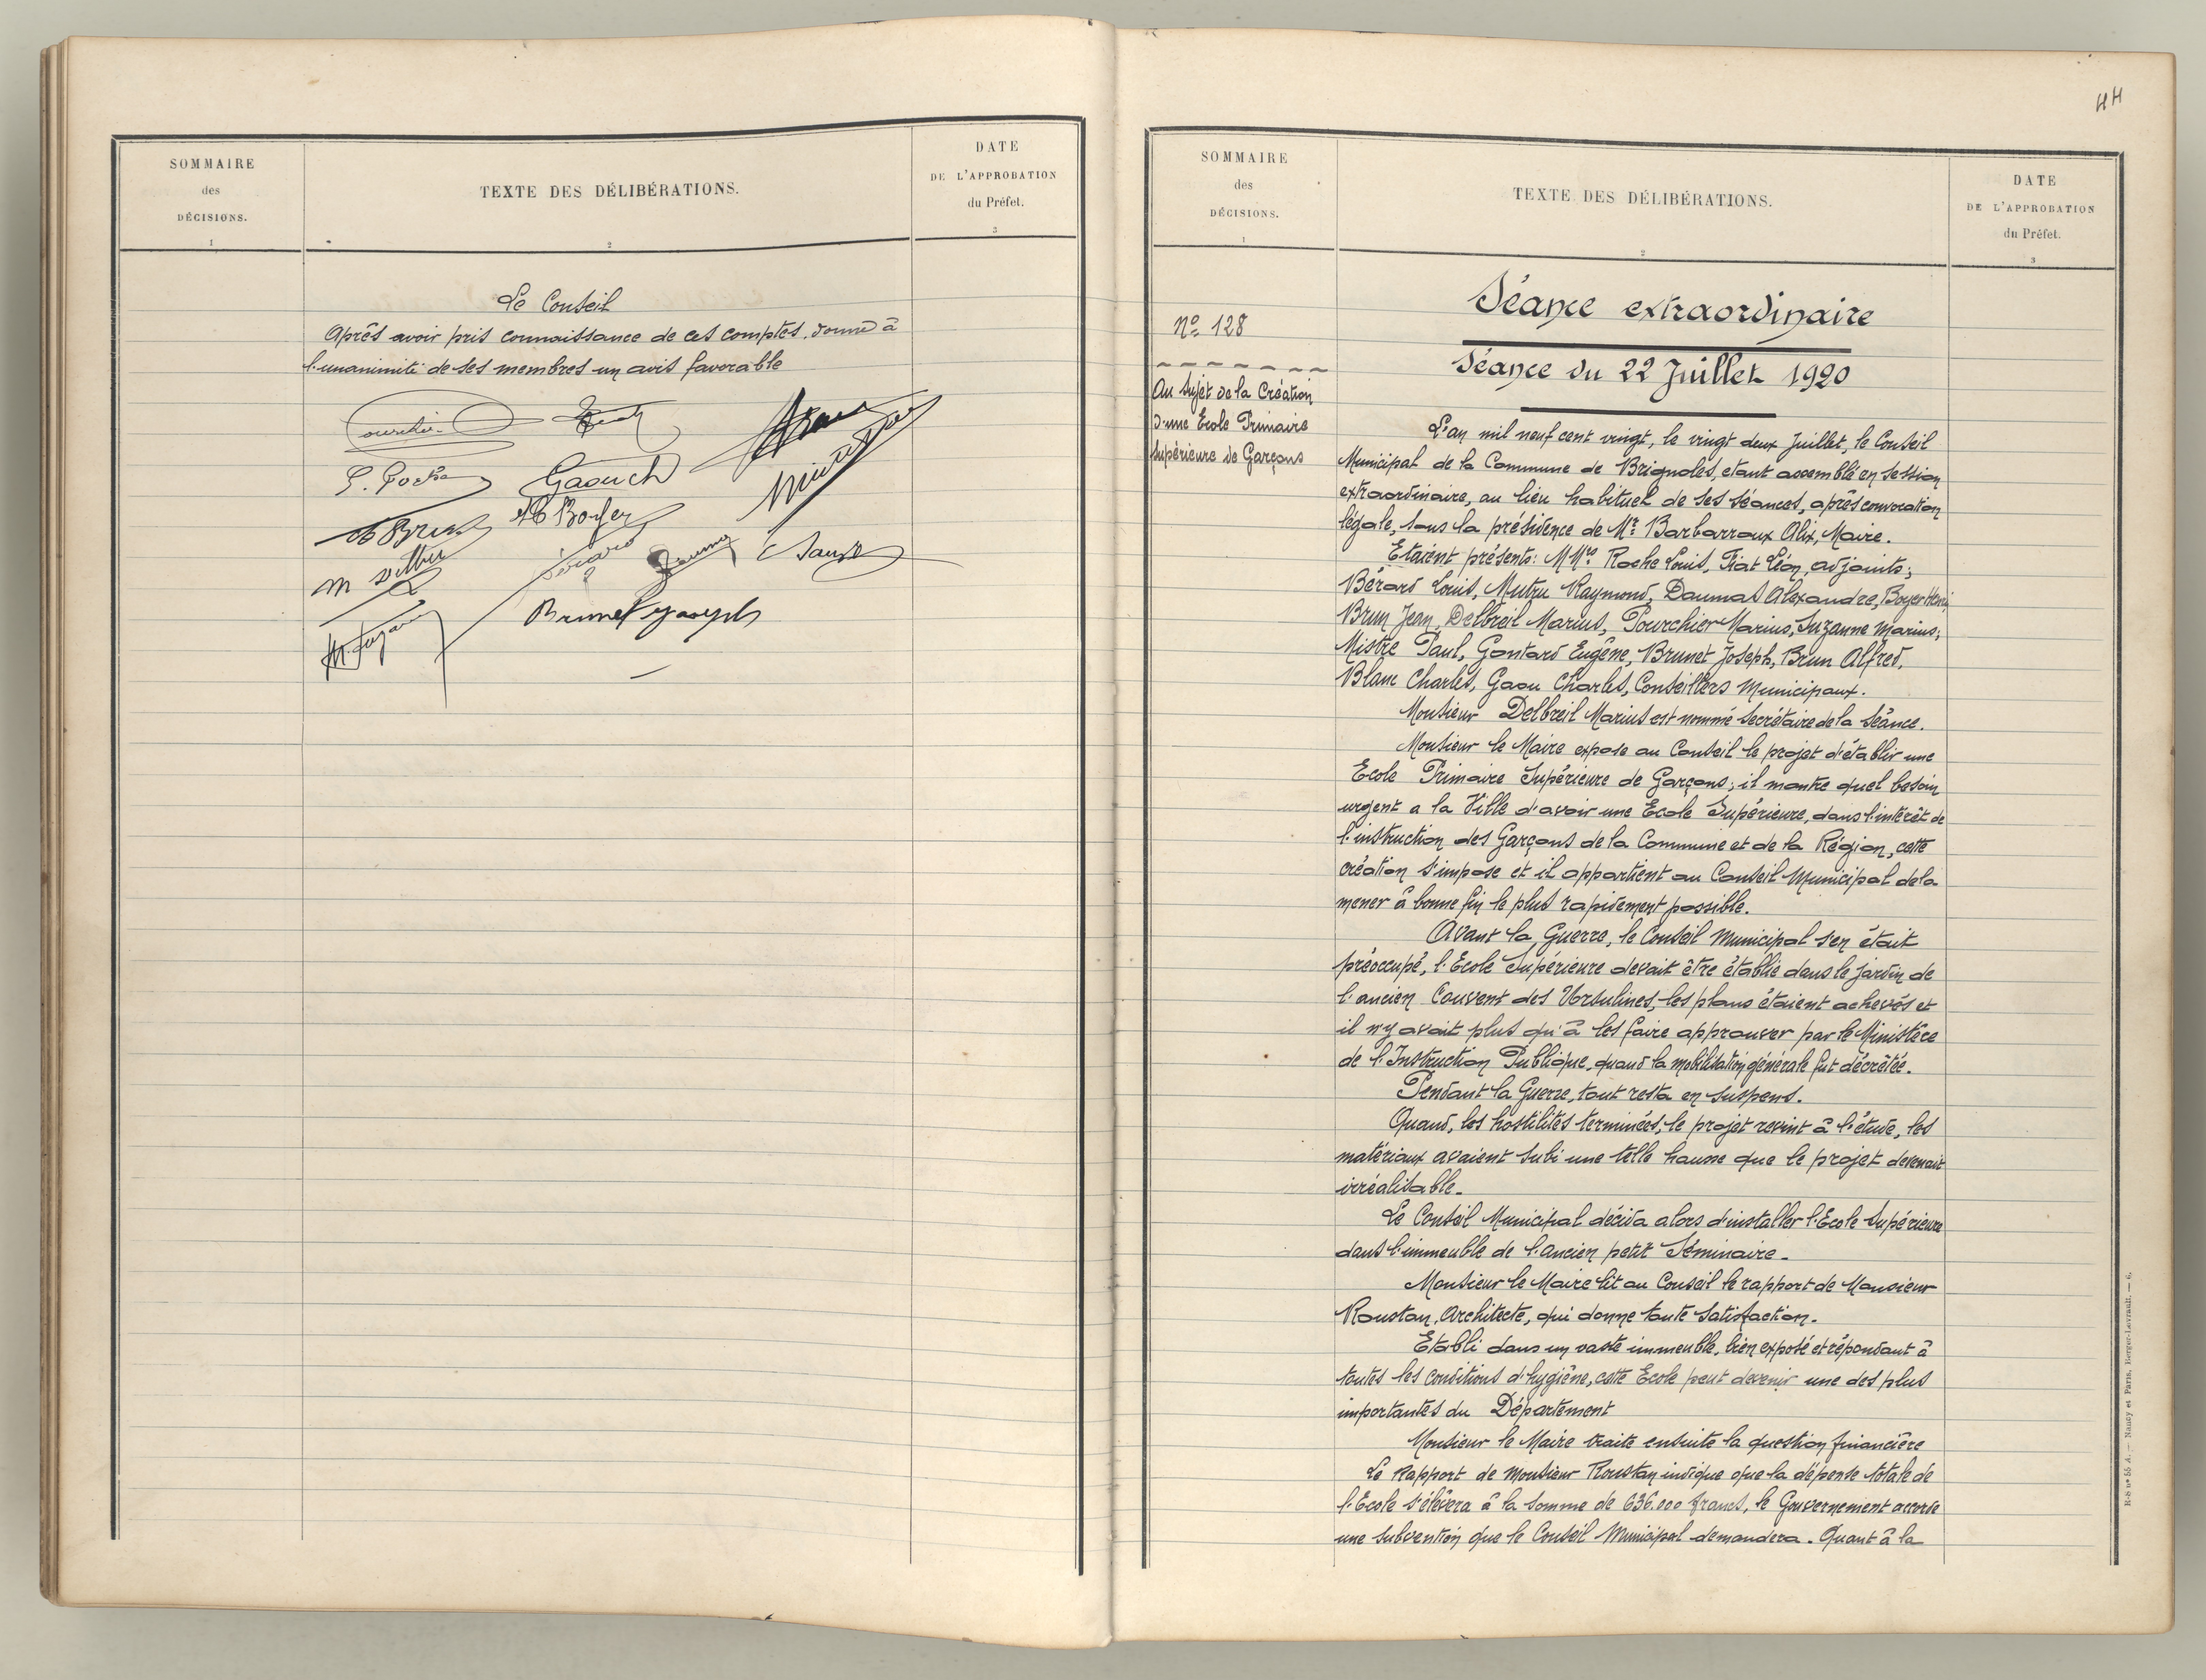 SOMMAIRE
des
DÉCISIONS.
1
TEXTE DES DÉLIBÉRATIONS.
2
DATE
DE L'APPROBATION
du Préfet.
3
Le Conseil
Après avoir pris connaissance de ces comptes. donne à
l'unanimité de ses membres un avis favorable
Gaou ch
Hi Boyer
Brunet Joseph
44
SOMMAIRE
des
DÉCISIONS.
1
TEXTE DES DÉLIBÉRATIONS.
2
DATE
DE L'APPROBATION
du Préfet.
3
No 128
Au Sujet de la Création
d'une Ecole Primaire
Supérieure de Garçons
Séance extraordinaire
Séance du 22 Juillet 1920
L'an mil neuf cent vingt, le vingt deux Juillet, le Conseil
Municipal de la Commune de Brignoles, étant assemblé en session
extraordinaire, au lieu habituel de ses séances, après convocation
légale, sous la présidence de Mr. Barbarroux Alix, Maire.
Etaient présents: MMrs. Roche Louis, Fiat Léon, adjoints;
Bérard Louis, Mutru Raymond, Daumas Alexandre, Boyer Henri
Brun Jean, Delbreil Marius, Pourchier Marius, Suzanne Marius;
Mistre Paul, Gontard Eugène, Brunet Joseph, Brun Alfred,
Blanc Charles, Gaou Charles, Conseillers Municipaux.
Monsieur Delbreil Marius est nommé Secrétaire de la Séance.
Monsieur le Maire expose au Conseil le projet d'établir une
Ecole Primaire Supérieure de Garçons; il montre quel besoin
urgent a la Ville d'avoir une Ecole Supérieure, dans l'intérêt de
l'instruction des Garçons de la Commune et de la Région, cette
création s'impose et il appartient au Conseil Municipal de la
mener à bonne fin le plus rapidement possible.
Avant la Guerre, le Conseil Municipal s'en était
préoccupé, l'Ecole Supérieure devait être établie dans le jardin de
l'ancien Couvent des Ursulines, les plans étaient achevés et
il n'y avait plus qu'à les faire approuver par le Ministère
de l'Instruction Publique, quand la mobilisation générale fut décrétée.
Pendant la Guerre, tout resta en suspens.
Quand, les hostilités terminées, le projet revint à l'étude, les
matériaux avaient subi une telle hausse que le projet devenait
irréalisable.
Le Conseil Municipal décida alors d'installer l'Ecole Supérieure
dans l'immeuble de l'ancien petit Séminaire.
Monsieur le Maire lit au Conseil le rapport de Monsieur
Roustan, Architecte, qui donne toute satisfaction.
Etabli dans un vaste immeuble, bien exposé et répondant à
toutes les conditions d'hygiène, cette Ecole peut devenir une des plus
importantes du Département
Monsieur le Maire traite ensuite la question financière
Le Rapport de Monsieur Roustan indique que la dépense totale de
l'Ecole s'élèvera à la somme de 636.000 francs, le Gouvernement accorde
une subvention que le Conseil Municipal demandera. Quant à la
R-S no 55 A. — Nancy et Paris, Berger-Levrault. — 6.